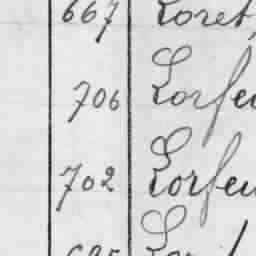 667 Loret
706 Lorfeu
702 Lorfeu